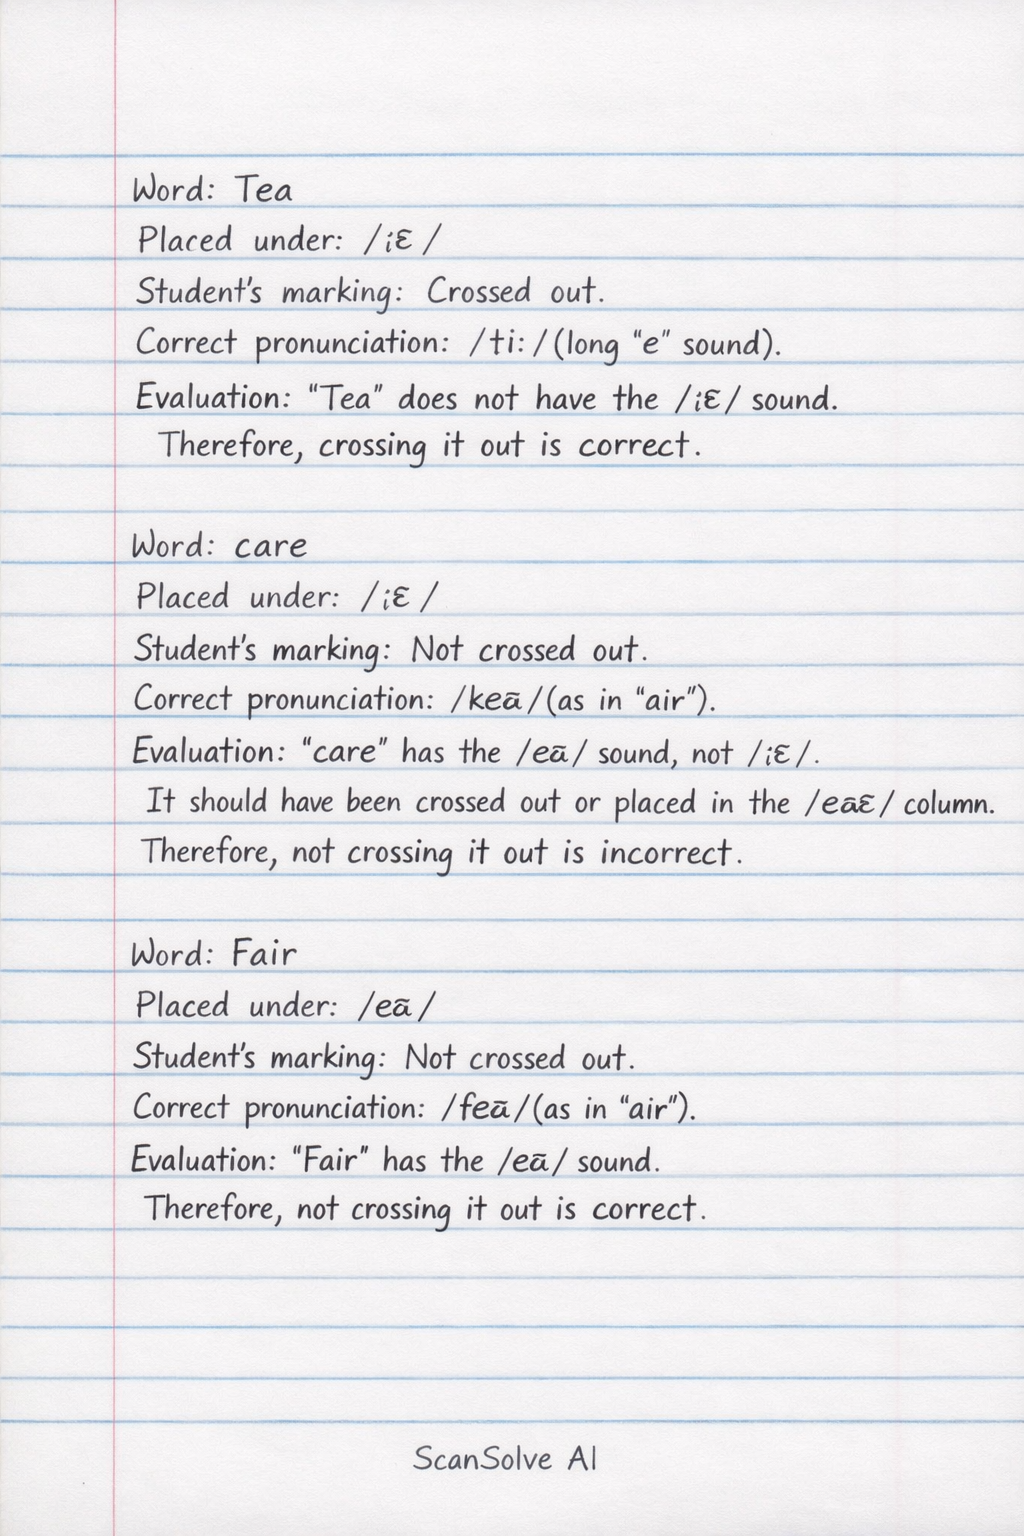 Word: Tea
Placed under: /iɛ /
Student's marking: Crossed out.
Correct pronunciation: /ti: /(long "e" sound).
Evaluation: "Tea" does not have the /iɛ/ sound.
Therefore, crossing it out is correct.
Word: care
Placed under: /iɛ /
Student's marking: Not crossed out.
Correct pronunciation: /keā/(as in "air").
Evaluation: "care" has the /eā/ sound, not /iɛ/.
It should have been crossed out or placed in the /eāɛ̄/ column.
Therefore, not crossing it out is incorrect.
Word: Fair
Placed under: /eā/
Student's marking: Not crossed out.
Correct pronunciation: /feā/(as in "air").
Evaluation: "Fair" has the /eā/ sound.
Therefore, not crossing it out is correct.
ScanSolve AI